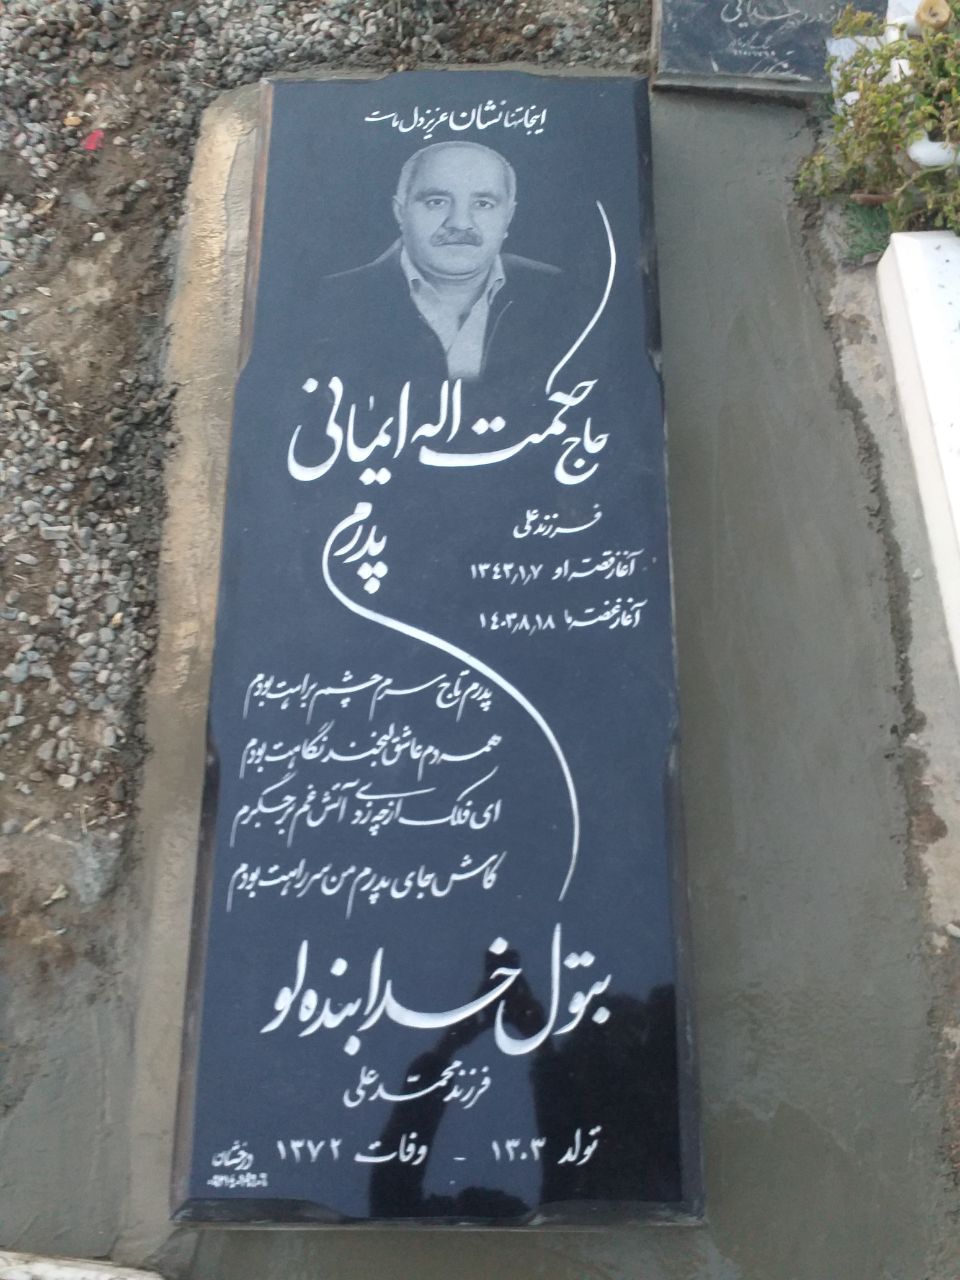 اینجا تنها نشان عزیز دل ماست
حاج حکمت اله ایمانی
فرزند علی
پدرم
آغاز قصه او ۱۳۴۳٫۱٫۷
آغاز غصه ما ۱۴۰۳٫۸٫۱۸
پدرم تاج سرم چشم براهت بودم
همه دم عاشق لبخند نگاهت بودم
ای فلک از چه زدی آتش غم بر جگرم
کاش جای پدرم من سر راهت بودم
بتول خدابنده لو
فرزند محمد علی
تولد ۱۳۰۳ - وفات ۱۳۷۲
درخشان